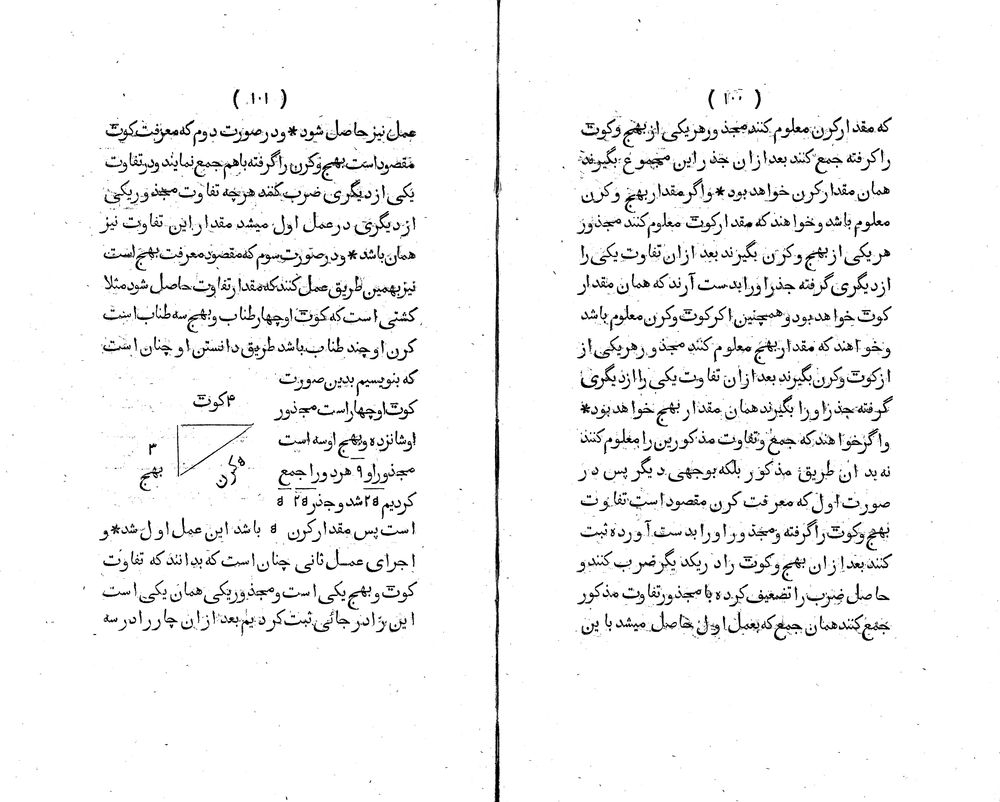 ( ۱۰۰ )
که مقدار کرن معلوم کنند مجذور هر یکی از بهج و کوت
را کرفته جمع کنند بعد ازان جذر این مجموع بگیرند
همان مقدار کرن خواهد بود * واگر مقدار بهج و کرن
معلوم باشد و خواهند که مقدار کوت معلوم کنند مجذور
هر یکی از بهج و کرن بگیرند بعد ازان تفاوت یکی را
از دیگری گرفته جذر او را بدست آرند که همان مقدار
کوت خواهد بود و همچنین اکر کوت و کرن معلوم باشد
و خواهند که مقدار بهج معلوم کنند مجذور هر یکی از
از کوت و کرن بگیرند بعد ازان تفاوت یکی را از دیگری
گرفته جذر او را بگیرند همان مقدار بهج خواهد بود *
واگر خواهند که جمع و تفاوت مذکورین را معلوم کنند
نه بدان طریق مذکور بلکه بوجهی دیگر پس در
صورت اول که معرفت کرن مقصود است تفاوت
بهج و کوت را گرفته و مجذور او را بدست آورده ثبت
کنند بعد ازان بهج و کوت را در یکدیگر ضرب کنند و
حاصل ضرب را تضعیف کرده با مجذور تفاوت مذکور
جمع کنند همان جمع که بعمل اول حاصل میشد با ین
( ۱۰۱ )
عمل نیز حاصل شود * و در صورت دوم که معرفت کوت
مقصود است بهج و کرن را گرفته باهم جمع نمایند و در تفاوت
یکی از دیگری ضرب کنند هرچه تفاوت مجذور یکی
از دیگری در عمل اول میشد مقدار این تفاوت نیز
همان باشد * و در صورت سوم که مقصود معرفت بهج است
نیز بهمین طریق عمل کنند که مقدار تفاوت حاصل شود مثلا
کشتی است که کوت او چهار طناب و بهج سه طناب است
کرن او چند طناب باشد طریق دانستن او چنان است
که بنویسیم بدین صورت
کوت او چهار است مجذور
او شانزده و بهج او سه است
مجذور او ۹ هردو را جمع
کردیم ۲۵ شد و جذر ۲۵ ۵
۴ کوت
۳
بهج
۵ کرن
است پس مقدار کرن ۵ باشد این عمل اول شد * و
اجرای عمل ثانی چنان است که بدانند که تفاوت
کوت و بهج یکی است و مجذور یکی همان یکی است
این را در جائی ثبت کردیم بعد ازان چار را در سه